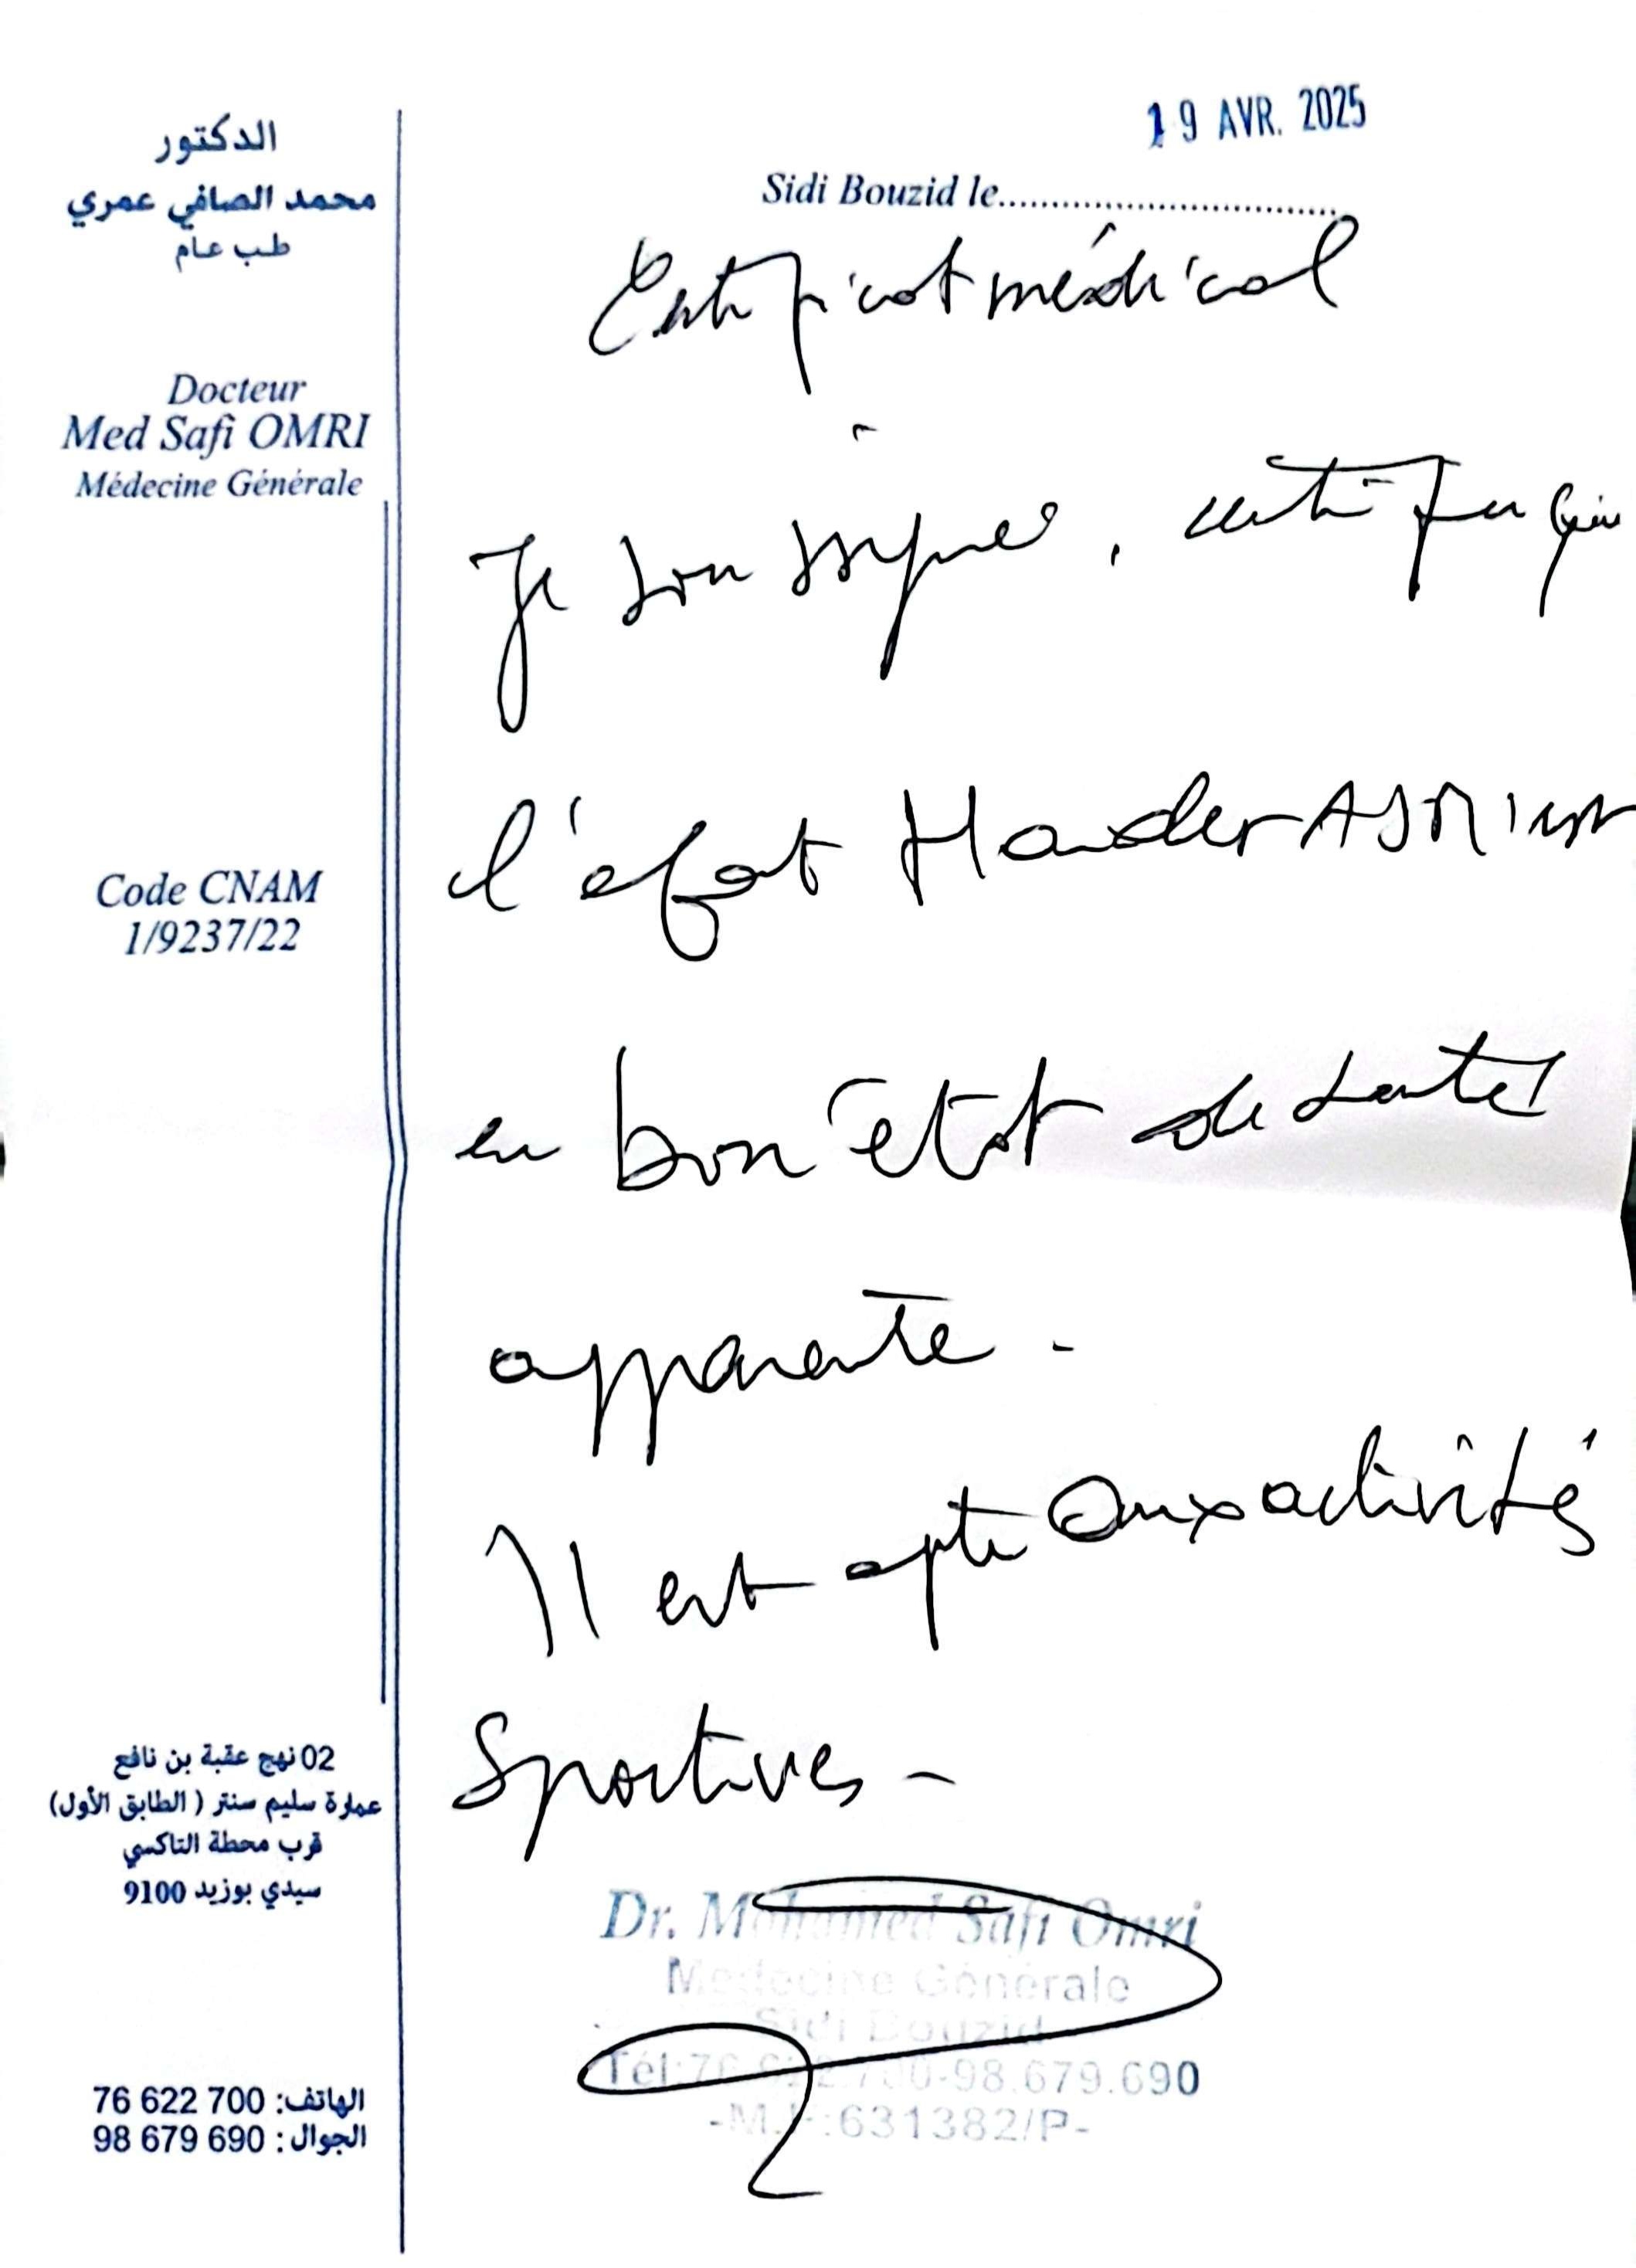 19 AVR. 2025
Sidi Bouzid le
الدكتور
محمد الصافي عمري
طب عام
Docteur
Med Safi OMRI
Médecine Générale
Code CNAM
1/9237/22
Certificat médical
Je soussigné, certifie que
l'enfant AJMI est
en bon état de santé
apparente -
Il est apte aux activités
Sportives -
02 نهج عقبة بن نافع
عمارة سليم سنتر ( الطابق الأول)
قرب محطة التاكسي
سيدي بوزيد 9100
الهاتف: 76 622 700
الجوال : 98 679 690
Dr. Mohamed Safi Omri
Médecine Générale
Sidi Bouzid
Tél:76.622.700-98.679.690
:631382/P-